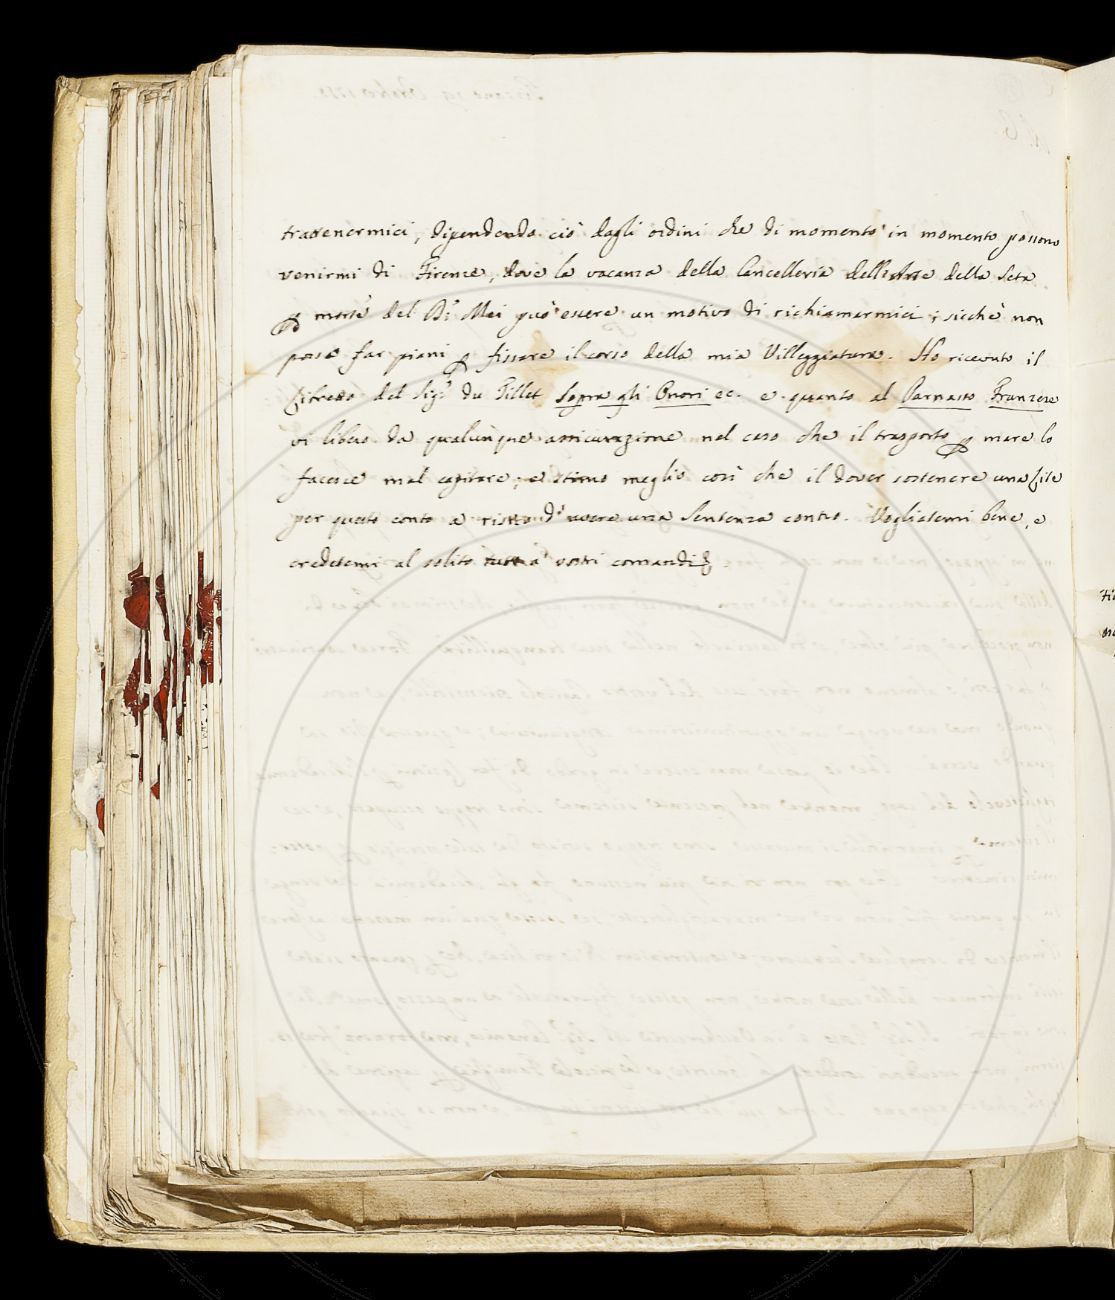 trattenermici, dipendendo ciò dagli ordini che di momento in momento possono
venirmi di Firenze, dove la vacanza della Cancelleria dell'Arte della Seta
morte del Mei può essere un motivo di richiamarmici; sicchè non
posso far piani fissare il corso della mia Villeggiatura. Ho ricevuto il
del Sig.r du Tillet sopra gli Onori ec. e quanto al Parnasso Franzese
vi libero da qualunque assicurazione nel caso che il trasporto mare lo
facesse mal capitare; e stimo meglio così che il dover sostenere una lite
per questo conto a risico d'avere una Sentenza contro. Vogliatemi bene, e
credetemi al solito tutto a' vostri comandi